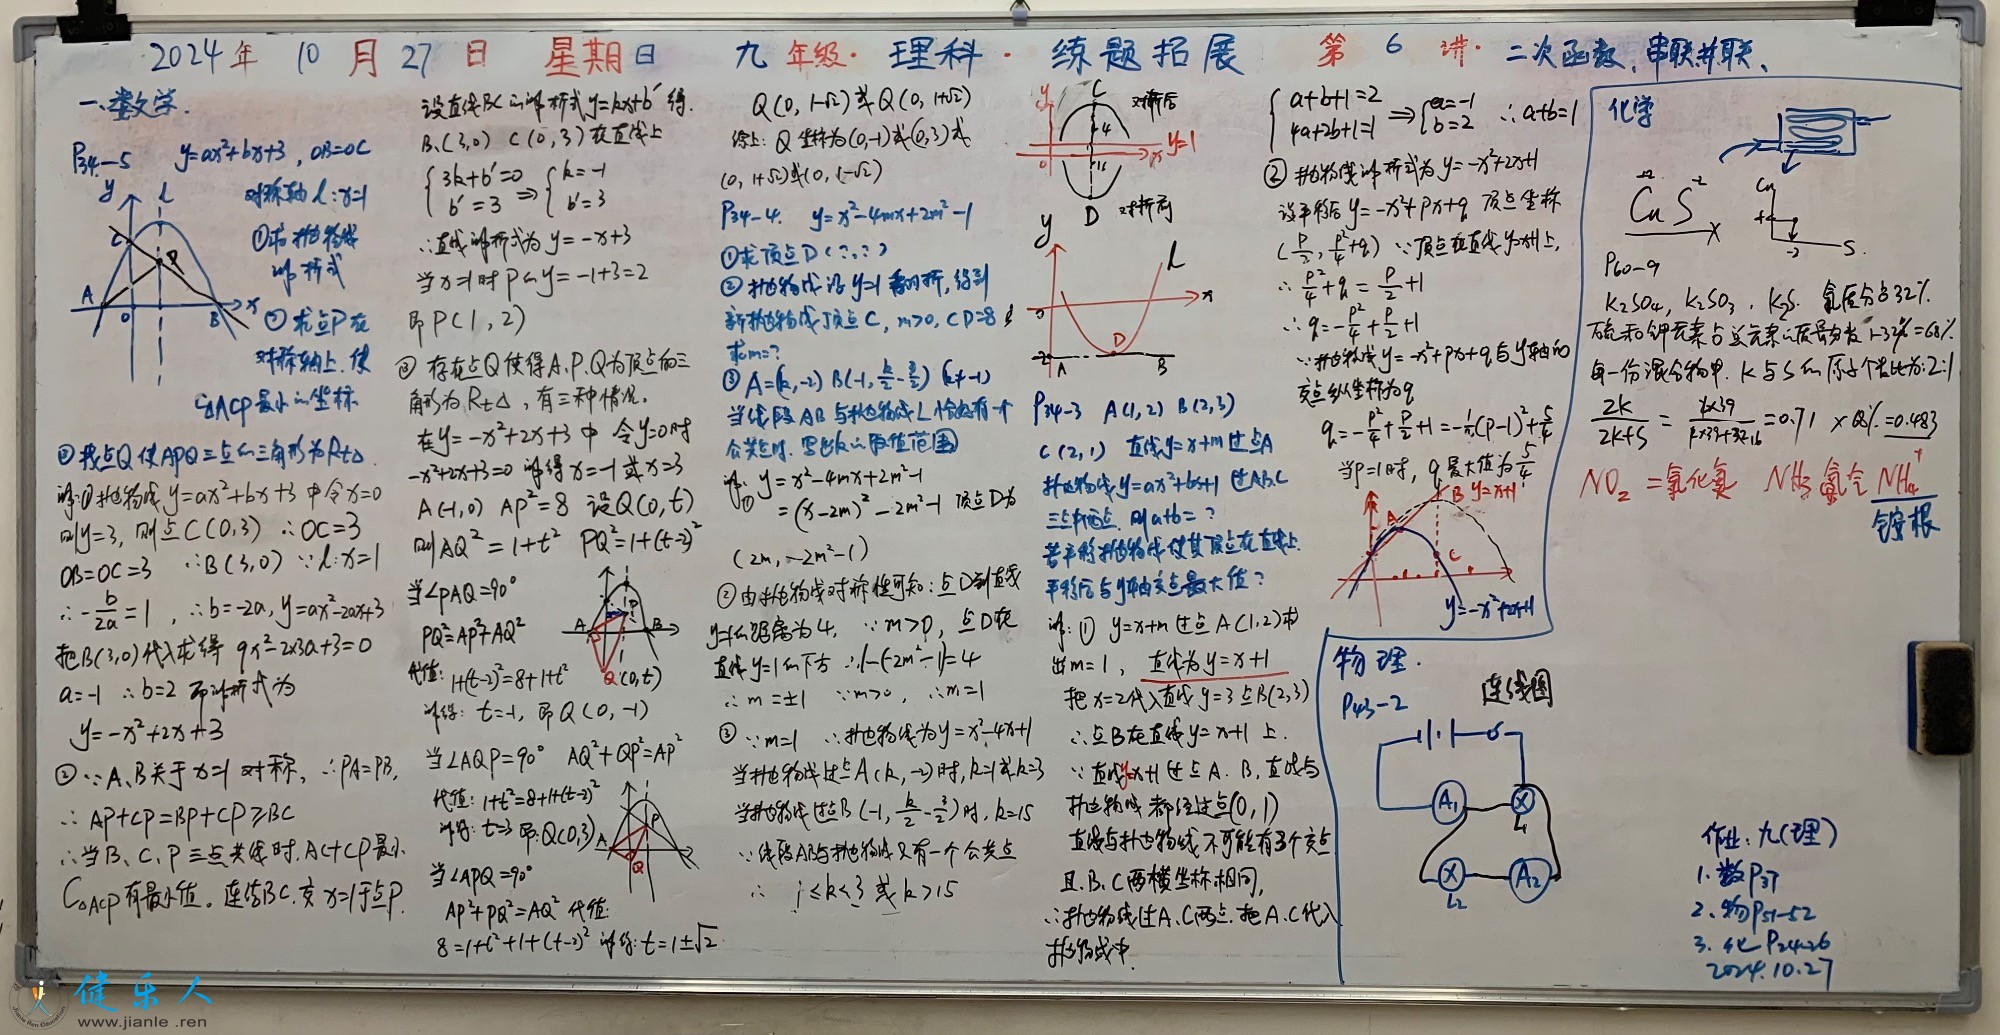 2024年 10月27日 星期日 九年级·理科·练题拓展 第6讲·二次函数、串联并联、
一、数学.
P34-5 y=ax²+bx+3, OB=OC
对称轴l:x=1
①求抛物线
解析式
②求点P在
对称轴上,使
△ACP最小的坐标
y
l
C
P
A
O
B
x
③找点Q使APQ三点的三角形为Rt△
解:①抛物线y=ax²+bx+3中令x=0
则y=3,则点C(0,3) ∴OC=3
OB=OC=3 ∴B(3,0) ∵l:x=1
∴-b/2a=1, ∴b=-2a, y=ax²-2ax+3
把B(3,0)代入求得 9x²-2x3a+3=0
a=-1 ∴b=2 即解析式为
y=-x²+2x+3
②∵A、B关于x=1对称, ∴PA=PB,
∴AP+CP=BP+CP≥BC
∴当B、C、P三点共线时,AC+CP最小.
C△ACP有最小值。连结BC.交x=1于点P.
设直线BC的解析式y=kx+b′得.
B(3,0) C(0,3)在直线上
{3k+b′=0 b′=3 ⇒ {k=-1 b′=3
∴直线解析式为y=-x+3
当x=1时P的y=-1+3=2
即P(1,2)
③存在点Q使得A.P.Q为顶点的三
角形为Rt△,有三种情况.
在y=-x²+2x+3中 令y=0时
-x²+2x+3=0 解得x=-1或x=3
A(-1,0) AP²=8 设Q(0,t)
则AQ²=1+t² PQ²=1+(t-2)²
当∠PAQ=90°
PQ²=AP²+AQ²
代值:1+(t-2)²=8+1+t²
解得:t=-1,即Q(0,-1)
A
P
B
Q(0,t)
当∠AQP=90° AQ²+QP²=AP²
代值:1+t²=8+1+(t-2)²
解得:t=3 即:Q(0,3)
A
P
Q
当∠APQ=90°
AP²+PQ²=AQ² 代值:
8=1+t²+1+(t-2)² 解得:t=1±√2
Q(0,1-√2)或Q(0,1+√2)
综上:Q坐标为(0,-1)或(0,3)或
(0,1+√2)或(0,1-√2)
P34-4. y=x²-4mx+2m²-1
①求顶点D(?,?)
②抛物线沿y=1翻折,得到
新抛物线顶点C,m>0,CD=8
求m=?
③A=(k,-2) B(-1,k/2-3/2) (k≠-1)
当线段AB与抛物线L恰有一个
公共点时.写出k的取值范围
解:①y=x²-4mx+2m²-1
=(x-2m)²-2m²-1 顶点D为
(2m,-2m²-1)
②由抛物线对称性可知:点D到直线
y=1的距离为4, ∵m>0,点D在
直线y=1的下方 ∴1-(-2m²-1)=4
∴m=±1 ∵m>0, ∴m=1
③∵m=1 ∴抛物线为y=x²-4x+1
当抛物线过点A(k,-2)时,k=1或k=3
当抛物线过点B(-1,k/2-3/2)时,k=15
∵线段AB与抛物线只有一个公共点
∴ 1≤k<3或k>15
y
C
对折后
4
x
y=1
O
D
对折前
y
L
x
D
-2
A
B
P34-3 A(1,2) B(2,3)
C(2,1) 直线y=x+m过点A
抛物线y=ax²+bx+1过A.B.C
三点中两点 则a+b=?
若平移抛物线使其顶点在直线上.
平移后与y轴交点最大值?
解:①y=x+m过点A(1,2)求
出m=1, 直线为y=x+1
把x=2代入直线y=3点B(2,3)
∴点B在直线y=x+1上.
∵直线y=x+1过点A.B,直线与
抛物线都经过点(0,1)
直线与抛物线不可能有3个交点
且.B、C两横坐标相同,
∴抛物线过A、C两点.把A.C代入
抛物线中.
{a+b+1=2 4a+2b+1=1 ⇒{a=-1 b=2 ∴a+b=1
②抛物线解析式为y=-x²+2x+1
设平移后y=-x²+px+q 顶点坐标
(p/2, p²/4+q) ∵顶点在直线y=x+1上,
∴p²/4+q=p/2+1
∴q=-p²/4+p/2+1
∵抛物线y=-x²+px+q与y轴的
交点纵坐标为q
q=-p²/4+p/2+1=-¼(p-1)²+5/4
当p=1时,q最大值为5/4
B y=x+1
A
C
y=-x²+2x+1
物理.
P43-2
连线图
A₁
L₁
L₂
A₂
化学
+2 -2
Cu S
x
Cu
+
-2
S
P60-9
K₂SO₄, K₂SO₃, K₂S. 氧质分占32%.
硫和钾元素占总元素的质量分数1-32%=68%
每一份混合物中.K与S的原子个数比为:2:1
2K/2K+S = 2x39/2x39+32 =0.71 ×68%=0.483
NO₂=氧化氮 NH₃氨气 NH₄⁺
铵根
作业:九(理)
1.数P37
2.物P51-52
3.化P24-26
2024.10.27
健乐人
www.jianle.ren